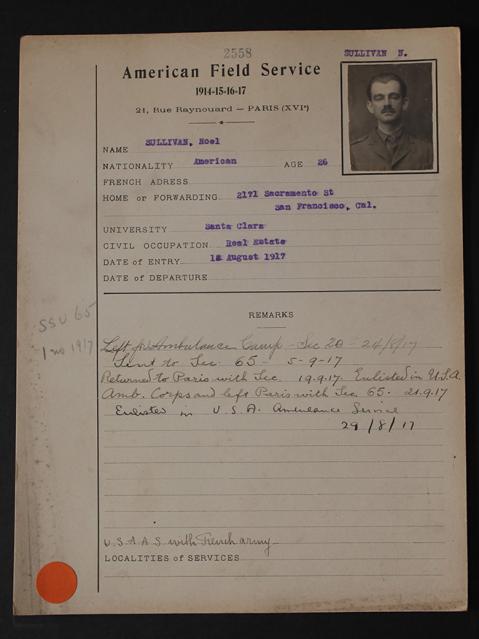 2558
SULLIVAN N.
American Field Service
1914-15-16-17
21, Rue Raynouard — PARIS (XVIe)
NAME SULLIVAN, Noel
NATIONALITY American AGE 26
FRENCH ADRESS
HOME or FORWARDING 2171 Sacramento St
San Francisco, Cal.
UNIVERSITY Santa Clara
CIVIL OCCUPATION Real Estate
DATE of ENTRY 18 August 1917
DATE of DEPARTURE
REMARKS
SSU 65
1 no 1917
Left for Ambulance Camp - Sec 20 - 24/8/17
Sent to Sec. 65 - 5-9-17
Returned to Paris with Sec. 19.9.17. Enlisted in U.S.A.
Amb. Corps and left Paris with Sec 65. 21.9.17
Enlisted in U.S.A. Ambulance Service
29/8/17
U.S.A.A.S with French army
LOCALITIES of SERVICES